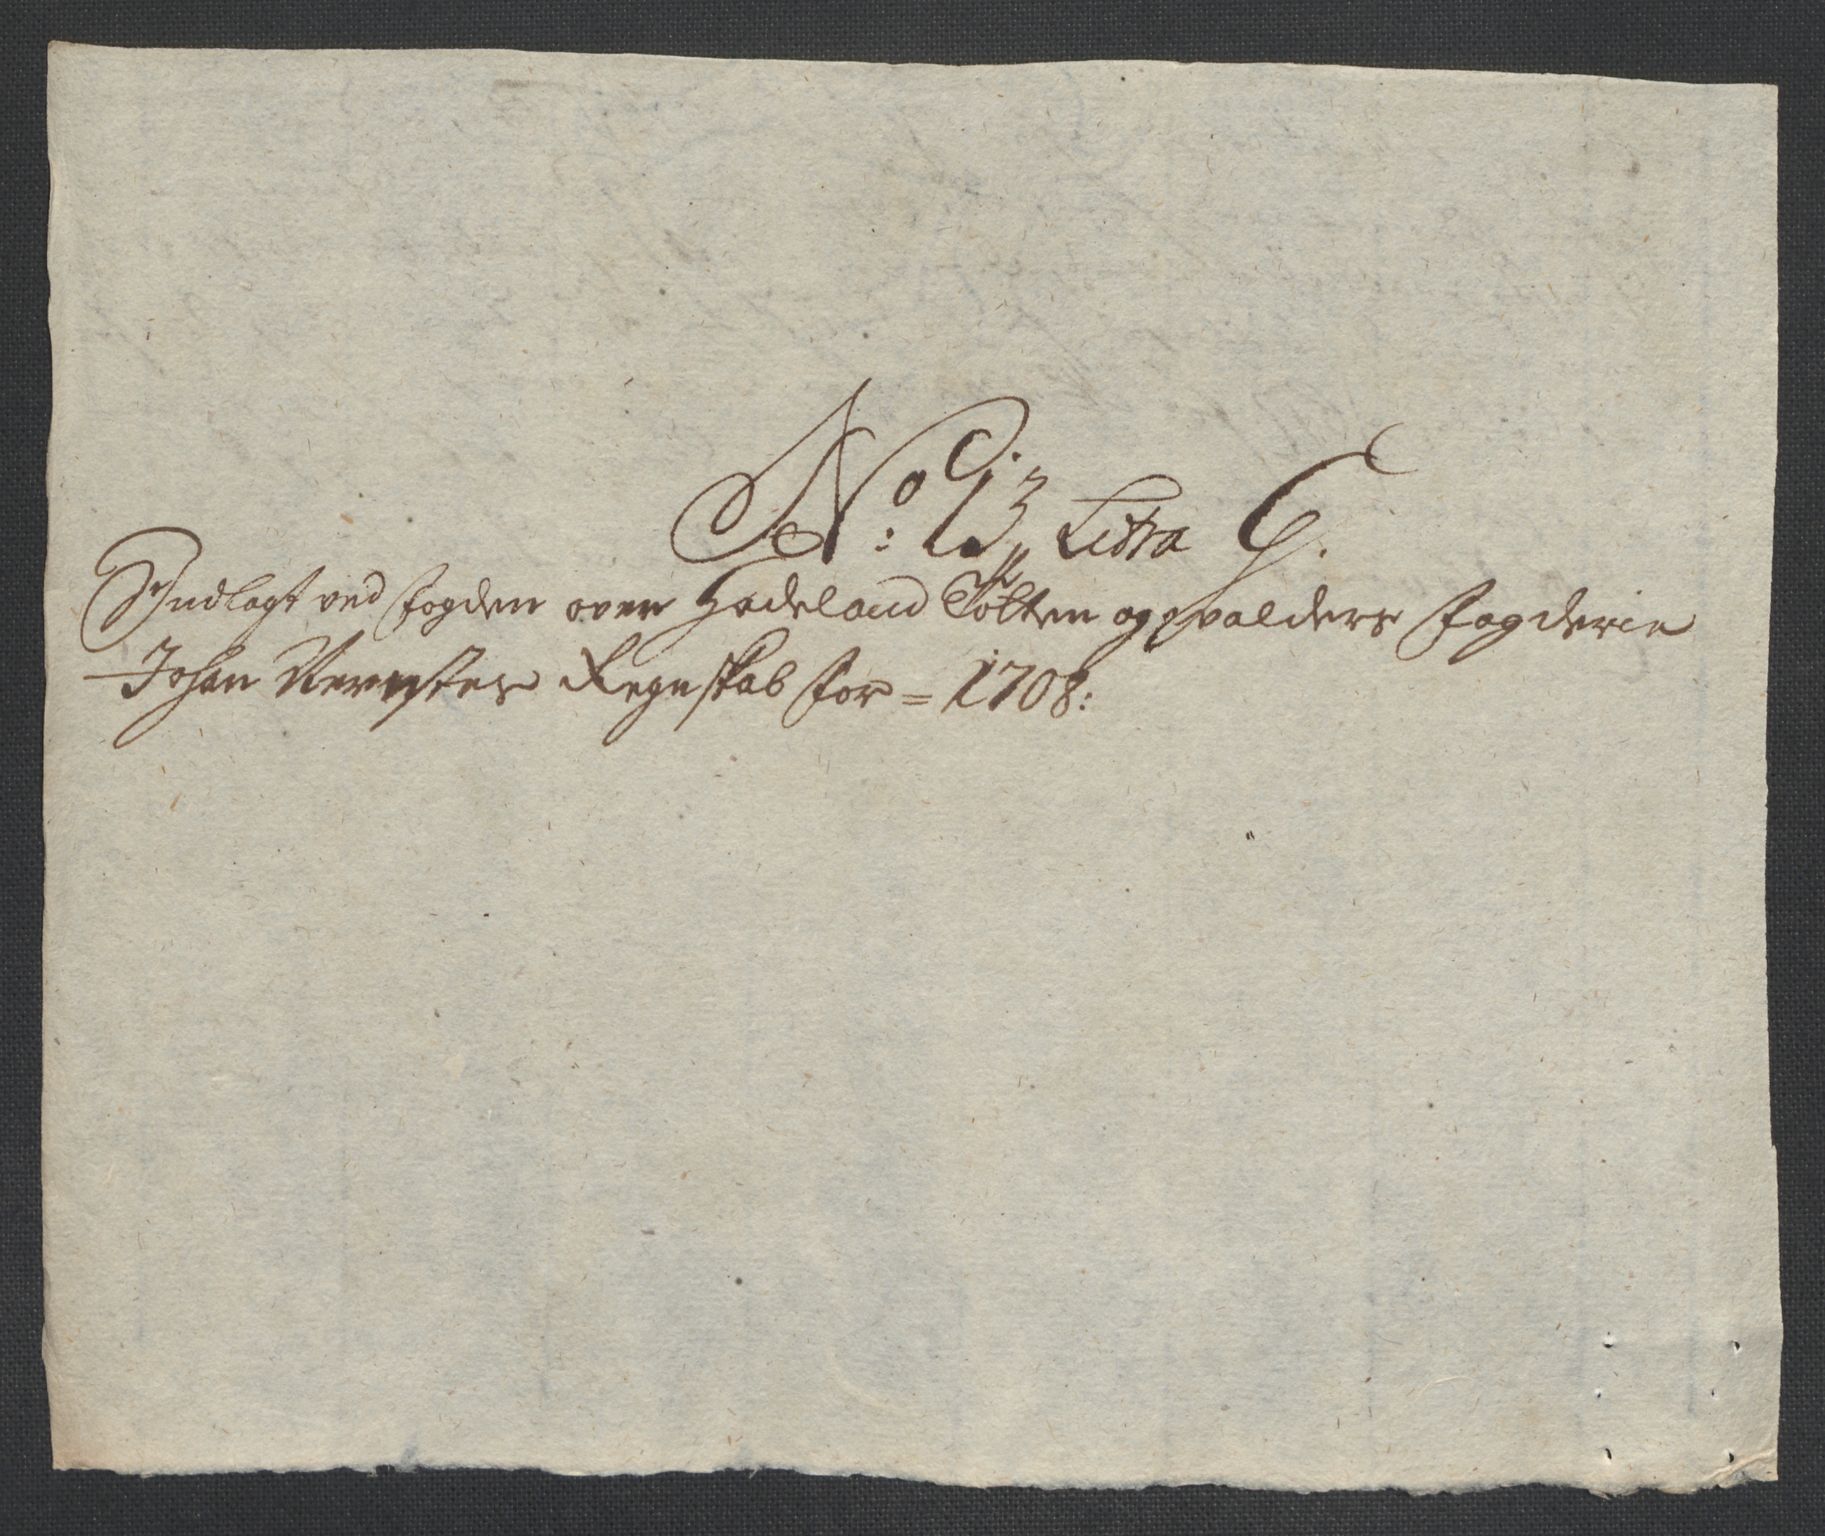 No: 13 Litra C.
Indlagt ved fogden over Hadeland Tolten og Valders fogderie
Johan Regnskab for = 1708: